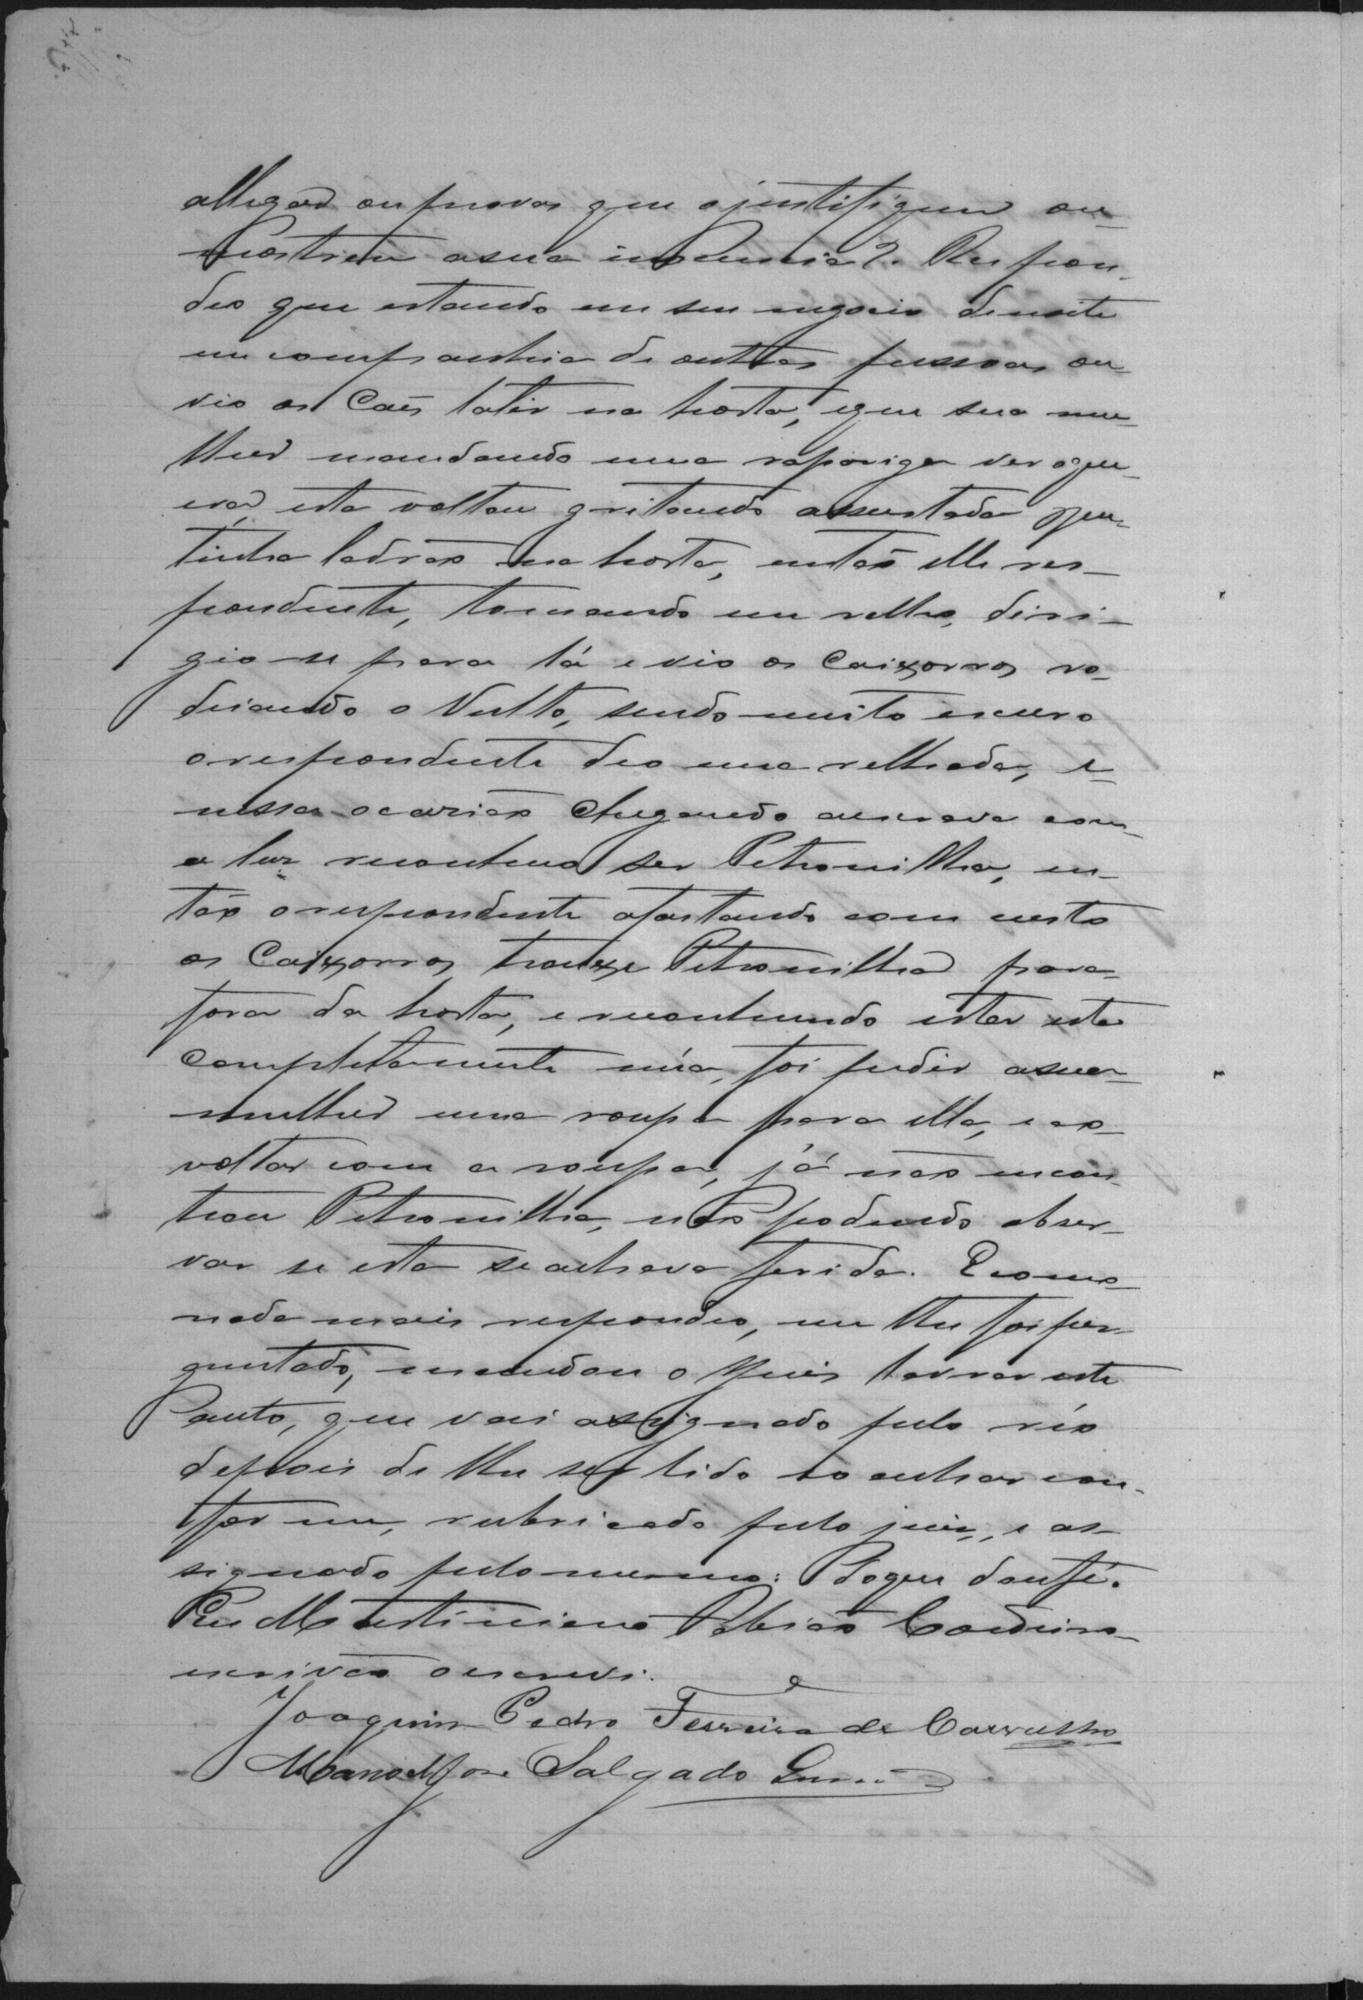 allegar ou provas que o justifiquem ou
mostrem a sua innocencia? Respon-
deo que estando em seu negocio de noite
em companhia de outras pessoas ou-
vio os Caẽs latir na horta, e que sua mu-
lher mandando uma rapariga ver o que
era, esta voltou gritando assustada que
tinha ladrão na horta, então elle res-
pondente, tomando um relho, diri-
gio-se para lá e vio os Caixorros ro-
deiando o Vulto, sendo muito escuro
o respondente deo uma relhada, e
nessa occasião chegando a escrava com
a luz reconheceo ser Petronilha, en-
tão o respondente afastando com custo
os Caixorros trouxe Petronilha para
fora da horta, e reconhecendo estar esta
completamente núa, foi pedir a sua
mulher uma roupa para ella, e ao
voltar com a roupa, já não encon-
trou Petronilha, não podendo obser-
var se esta se achava ferida. E como
nada mais respondeo, nem lhe foi per-
guntado, mandou o Juis lavrar este
auto, que vai assignado pelo réo
depois de lhe ser lido e o achar con-
forme, rubricado pelo juiz, e as-
signado pelo mesmo: Do que dou fé.
Eu Martiniano Cordeiro
escrivão o escrevi.
Joaquim Pedro Ferreira de Carvalho
Manoel Jose Salgado